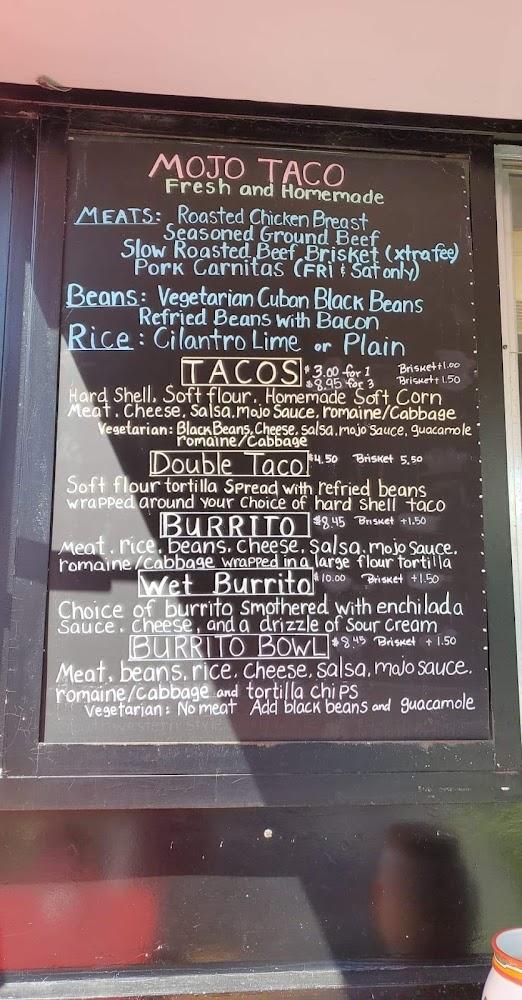 MOJO TACO
Fresh and Homemade
MEATS: Roasted Chicken Breast
Seasoned Ground Beef
Slow Roasted Beef Brisket (xtra fee)
Pork Carnitas (FRI & Sat only)
Beans: Vegetarian Cuban Black Beans
Refried Beans with Bacon
Rice: Cilantro Lime or Plain
TACOS $3.00 for 1 Brisket+1.00
$8.95 for 3 Brisket+1.50
Hard Shell, Soft flour, Homemade Soft Corn
Meat, Cheese, Salsa, mojo Sauce, romaine/Cabbage
Vegetarian: Black Beans, Cheese, salsa, mojo sauce, guacamole
romaine/Cabbage
Double Taco $4.50 Brisket 5.50
Soft flour tortilla Spread with refried beans
wrapped around your choice of hard shell taco
BURRITO $8.45 Brisket +1.50
Meat, rice, beans, Cheese, Salsa, mojo Sauce,
romaine/cabbage wrapped in a large flour tortilla
Wet Burrito $10.00 Brisket +1.50
Choice of burrito Smothered with enchilada
Sauce, cheese, and a drizzle of Sour Cream
BURRITO BOWL $8.45 Brisket +1.50
Meat, beans, rice, Cheese, salsa, mojo sauce,
romaine/cabbage and tortilla chips
Vegetarian: No meat Add black beans and guacamole